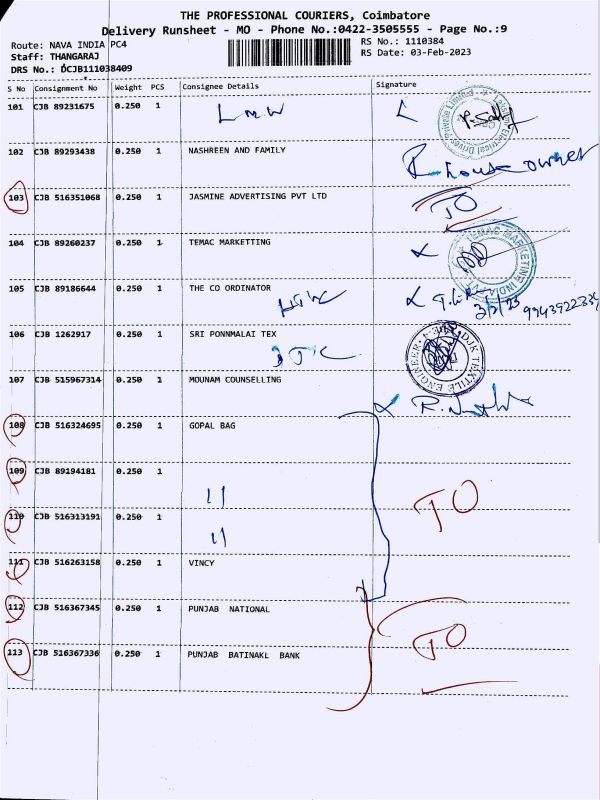 THE PROFESSIONAL COURIERS, Coimbatore
Delivery Runsheet - MO - Phone No.:0422-3505555 - Page No.:9
Route: NAVA INDIA PC4
Staff: THANGARAJ
DRS No.: DCJB111038409
RS No.: 1110384
RS Date: 03-Feb-2023
S No Consignment No Weight PCS Consignee Details Signature
101 CJB 89231675 0.250 1 LMW
102 CJB 89293438 0.250 1 NASHREEN AND FAMILY house owner
103 CJB 516351068 0.250 1 JASMINE ADVERTISING PVT LTD TO
104 CJB 89260237 0.250 1 TEMAC MARKETTING
105 CJB 89186644 0.250 1 THE CO ORDINATOR
106 CJB 1262917 0.250 1 SRI PONNMALAI TEX
DJK TEXTILE ENGINEER
107 CJB 515967314 0.250 1 MOUNAM COUNSELLING
108 CJB 516324695 0.250 1 GOPAL BAG
109 CJB 89194181 0.250 1 11
TO
110 CJB 516313191 0.250 1 11
111 CJB 516263158 0.250 1 VINCY
112 CJB 516367345 0.250 1 PUNJAB NATIONAL
TO
113 CJB 516367336 0.250 1 PUNJAB BATINAKL BANK